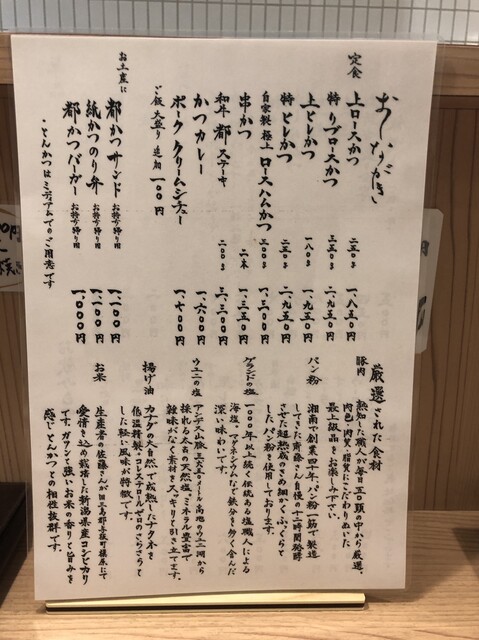 おしながき
定食
上ロースかつ 二五〇g 一、八五〇円
特リブロースかつ 三五〇g 二、九五〇円
上ヒレかつ 一八〇g 一、九五〇円
特ヒレかつ 二五〇g 二、九五〇円
自家製極上ロースハムかつ 三〇〇g 一、三〇〇円
串かつ 二本 一、三五〇円
和牛都ステーキ 二〇〇g 三、三〇〇円
かつカレー 一、六〇〇円
ポーククリームシチュー 一、七〇〇円
ご飯大盛り追加一〇〇円
お土産に
都かつサンド お持ち帰り用 一、一〇〇円
紙かつのり弁 お持ち帰り用 一、一〇〇円
都かつバーガー お持ち帰り用 一、〇〇〇円
・とんかつはミディアムでのご用意です
厳選された食材
豚肉
熟知した職人が毎日五〇頭の中から厳選。
肉色・肉質・脂質にこだわりぬいた
最上級品をお楽しみ下さい。
パン粉
湘南で創業四十年、パン粉一筋で製造
してきた斉藤さん自慢の十二時間発酵
させた超熟成のきめ細かくふっくらと
したパン粉を使用しております。
ゲランドの塩
一〇〇〇年以上続く伝統ある塩職人による
海塩・マグネシウムなど鉄分を多く含んだ
深い味わいです。
ウユニの塩
アンデス山脈 三六五〇メートル高地のウユニ湖から
採れる太古の天然塩。ミネラル豊富で
雑味がなく素材をスッキリと引き立てます。
揚げ油
カナダの大自然で成熟したナタネを
低温精製。コレステロールゼロのさらさらと
した軽い風味が特徴です。
お米
生産者の佐藤さんが旧三島郡与板町槙原にて
愛情を込め栽培した新潟県産コシヒカリ
です。ガツンと強いお米の香りと旨みを
感じとんかつとの相性抜群です。